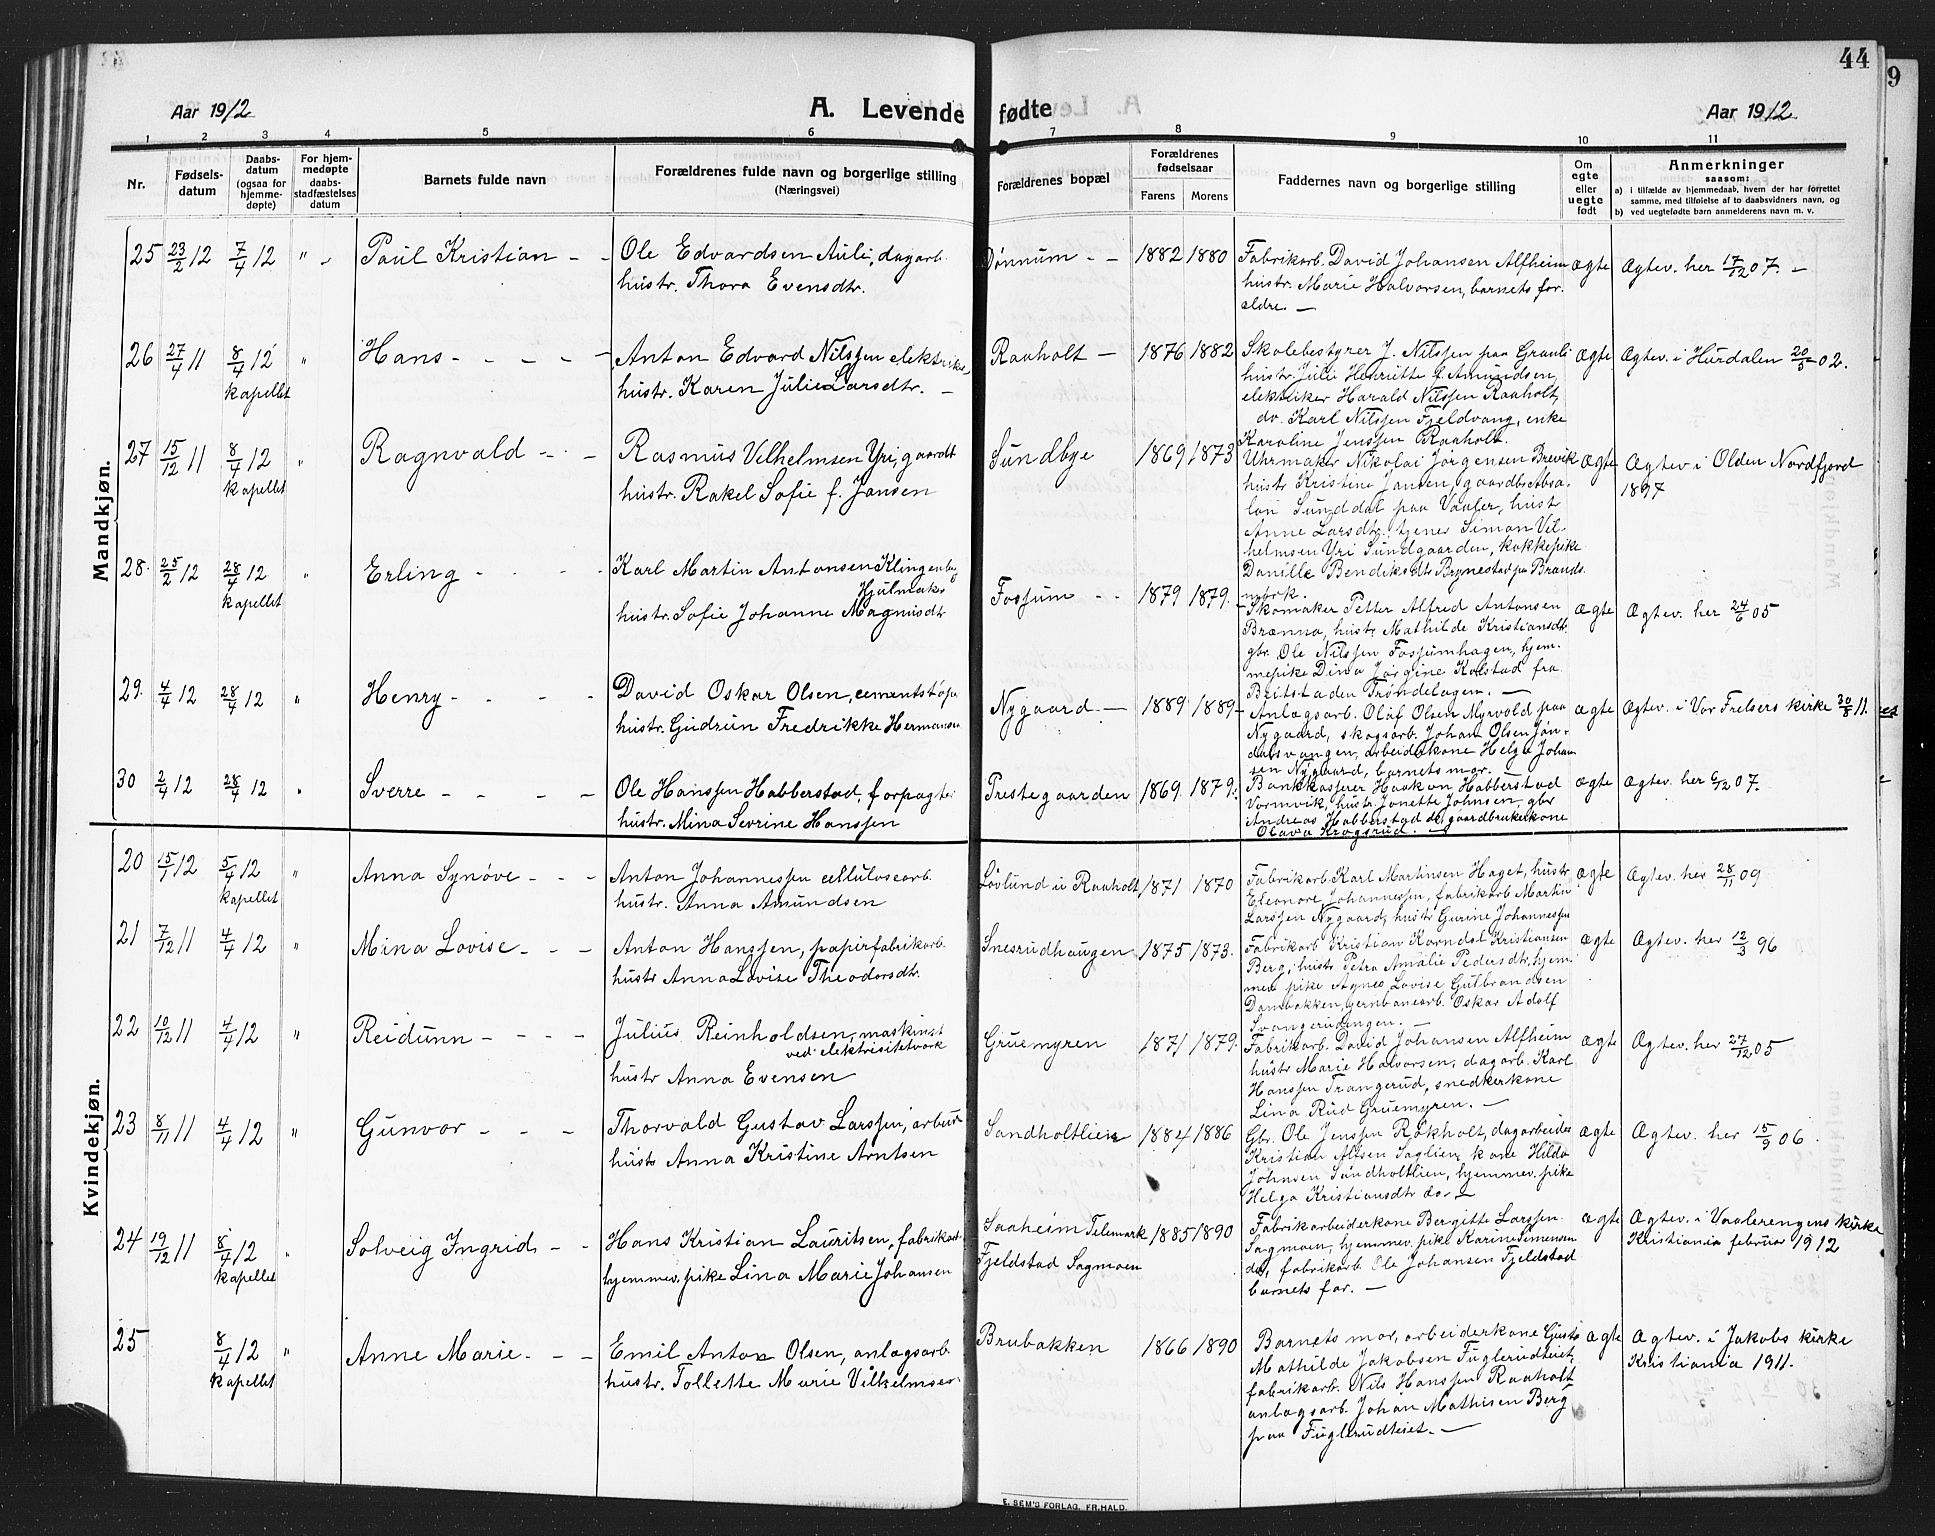 44
9
Aar 1912
A. Levende fødte
Aar 1912
1 2 3 4 5 6 7 8 9 10 11
Nr.
Fødsels-
datum
Daabs-
datum
(ogsaa for
hjemme-
døpte)
For hjem-
medøpte
daabs-
stadfæstelses
datum
Barnets fulde navn
Forældrenes fulde navn og borgerlige stilling
(Næringsvei)
Forældrenes bopæl
Forældrenes
fødselsaar
Farens Morens
Faddernes navn og borgerlige stilling
Om
egte
eller
uegte
født
Anmerkninger
saasom:
a) i tilfælde av hjemmedaab, hvem der har forrettet
samme, med tilføielse af to daabsvidners navn, og
b) ved uegtefødte barn anmelderens navn m. v.
Mandkjøn.
25 23/2 12 7/4 12 " Paul Kristian - -
Ole Edvardsen Auli, dagarb.
hustr. Thora Evensdtr.
Dønnum - - 1882 1880
Fabrikarb. David Johansen Alfheim
hustr. Marie Halvorsen, barnets for
ældre. —
ægte Ægtev. her 17/12 07. -
26 27/4 11 8/4 12 " Hans - - - -
kapellet
Anton Edvard Nilssen elektrike
hustr. Karen Julie Larsdtr. -
Raaholt - 1876 1882
Skolebestyrer J. Nilssen paa Grauli
hustr. Juli Henritte f. Amundsen,
elektriker Harald Nilssen Raaholt,
do. Karl Nilssen Fjeldvang, enke
Karoline Jenssen Raaholt.
ægte Ægtev. i Hurdalen 20/5 02.
27 15/12 11 8/4 12 " Ragnvald - -
kapellet
Rasmus Vilhelmsen Yri, gaardt
hustr. Rakel Sofie f. Jansen
Sundbye 1869 1873
Uhrmaker Nikolai Jørgensen Brevik
hustr Kristine Jansen, gaardbr. Absa-
lon Sunddal paa Vaaler, hustr
Anne Larsdtr. tjener Simon Vil-
helmsen Yri Sundgaarden, kokkepike
Danille Bendiksdtr Brynestad paa Brands-
mørk.
ægte Ægtev i Olden Nordfjord
1897
28. 25/2 12 28/4 12 " Erling - - -
kapellet
Karl Martin Antonsen Klingenberg
Hjulmaker
hustr. Sofie Johanne Magnusdtr
Fossum - - 1879 1879.
Skomaker Petter Alfred Antonsen
Brænna, hustr Mathilde Kristiansdtr.
gbr. Ole Nilssen Fossumhagen, hjem-
mepike Dina Jørgine Kolstad fra
Beitstaden Trøndelagen. —
ægte Ægtev. her 24/6 05
29. 4/4 12 28/4 12 " Henry - - -
David Oskar Olsen, cementstøpe
hustr. Gudrun Fredrikke Hermansen
Nygaard - 1889 1889
Anlægsarb. Olaf Olsen Myrvold paa
Nygaard, skogsarb. Johan Olsen Jøn-
dalsvangen, arbeiderkone Helga Johan
sen Nygaard, barnets mor.
ægte Ægtev. i Vor Frelsers kirke 30/8 11.
30 2/4 12 28/4 12 " Sverre - - - -
Ole Hanssen Habberstad, forpagter
hustr. Mina Sevrine Hanssen
Prestegaarden 1869 1879.
Bankkasserer Haakon Habberstad
Vormvik, hustr. Jonette Johnsen, gbr
Andreas Habberstad do, gaardbrukerkone
Olava Krogsrud. —
ægte Ægtev. her 6/12 07.
Kvindekjøn.
20 15/1 12 5/4 12 " Anna Synøve - - -
kapellet
Anton Johannessen cellulosearb.
hustr. Anna Amundsen
Løvlund u Raaholt 1871 1870
Fabrikarb. Karl Martinsen Haget, hustr
Eleonore Johannessen, fabrikarb Martin
Larssen Nygaard, hustr Gurine Johannessen
ægte Ægtev. her 28/11 09
21 7/12 11 4/4 12 " Mina Lovise - - -
Anton Hanssen, papirfabrikarb.
hustr Anna Lovise Theodorsdtr.
Snesrudhaugen 1875 1873.
Fabrikarb Kristian Korndal Kristiansen
Berg, hustr Petra Amalie Pedersdtr, hjem-
mev pike Agnes Lovise Gulbrandsen
Dambakken, jernbanearb. Oskar Adolf
Svangerudengen. —
ægte Ægtev. her 12/3 96
22 10/12 11 4/4 12 " Reidunn - - - -
Julius Reinholdsen, maskinist
ved elektrisitetverk
hustr Anna Evensen
Gruemyren 1871 1879.
Fabrikarb. David Johansen Alfheim
hustr Marie Halvorsen, dagarb. Karl
Hanssen Trangerud, snedkerkone
Lina Rud Gruemyren. —
ægte Ægtev. her 27/12 05
23 8/11 11 4/4 12 " Gunvor - - -
Thorvald Gustav Larssen, arbeid
hustr Anna Kristine Arntsen
Sandholtlien 1884 1886
Gbr. Ole Jenssen Røkholt, dagarbeider
Kristian Alfsen Saglien, kone Hilda
Johnsen Sundholtlien, hjemmev. pike
Helga Kristiansdtr do. —
ægte Ægtev. her 15/9 06.
24 19/12 11 8/4 12 " Solveig Ingrid - -
kapellet
Hans Kristian Lauritsen, fabrikarb
hjemmev. pike Lina Marie Johansen
Saaheim Telemark 1885 1890
Fjeldstad Sagmoen
Fabrikarbeiderkone Bergitte Larssen
Sagmoen, hjemmev. pike Karine Simensen
do, fabrikarb. Ole Johansen Fjeldstad
barnets far. —
ægte Ægtev. i Vaalerengens kirke
Kristiania februar 1912
25 8/4 12 " Anne Marie - - -
kapellet
Emil Anton Olsen, anlægsarb
hustr. Tollette Marie Vilhelmsen
Brubakken 1866 1890
Barnets mor, arbeiderkone Gusta
Mathilde Jakobsen Fuglerudteiet,
fabrikarb. Nils Hanssen Raaholt
anlægsarb. Johan Mathisen Berg
paa Fuglerudteiet. —
ægte Ægtev. i Jakobs kirke
Kristiania 1911.
E. SEM'S FORLAG, FR.HALD.